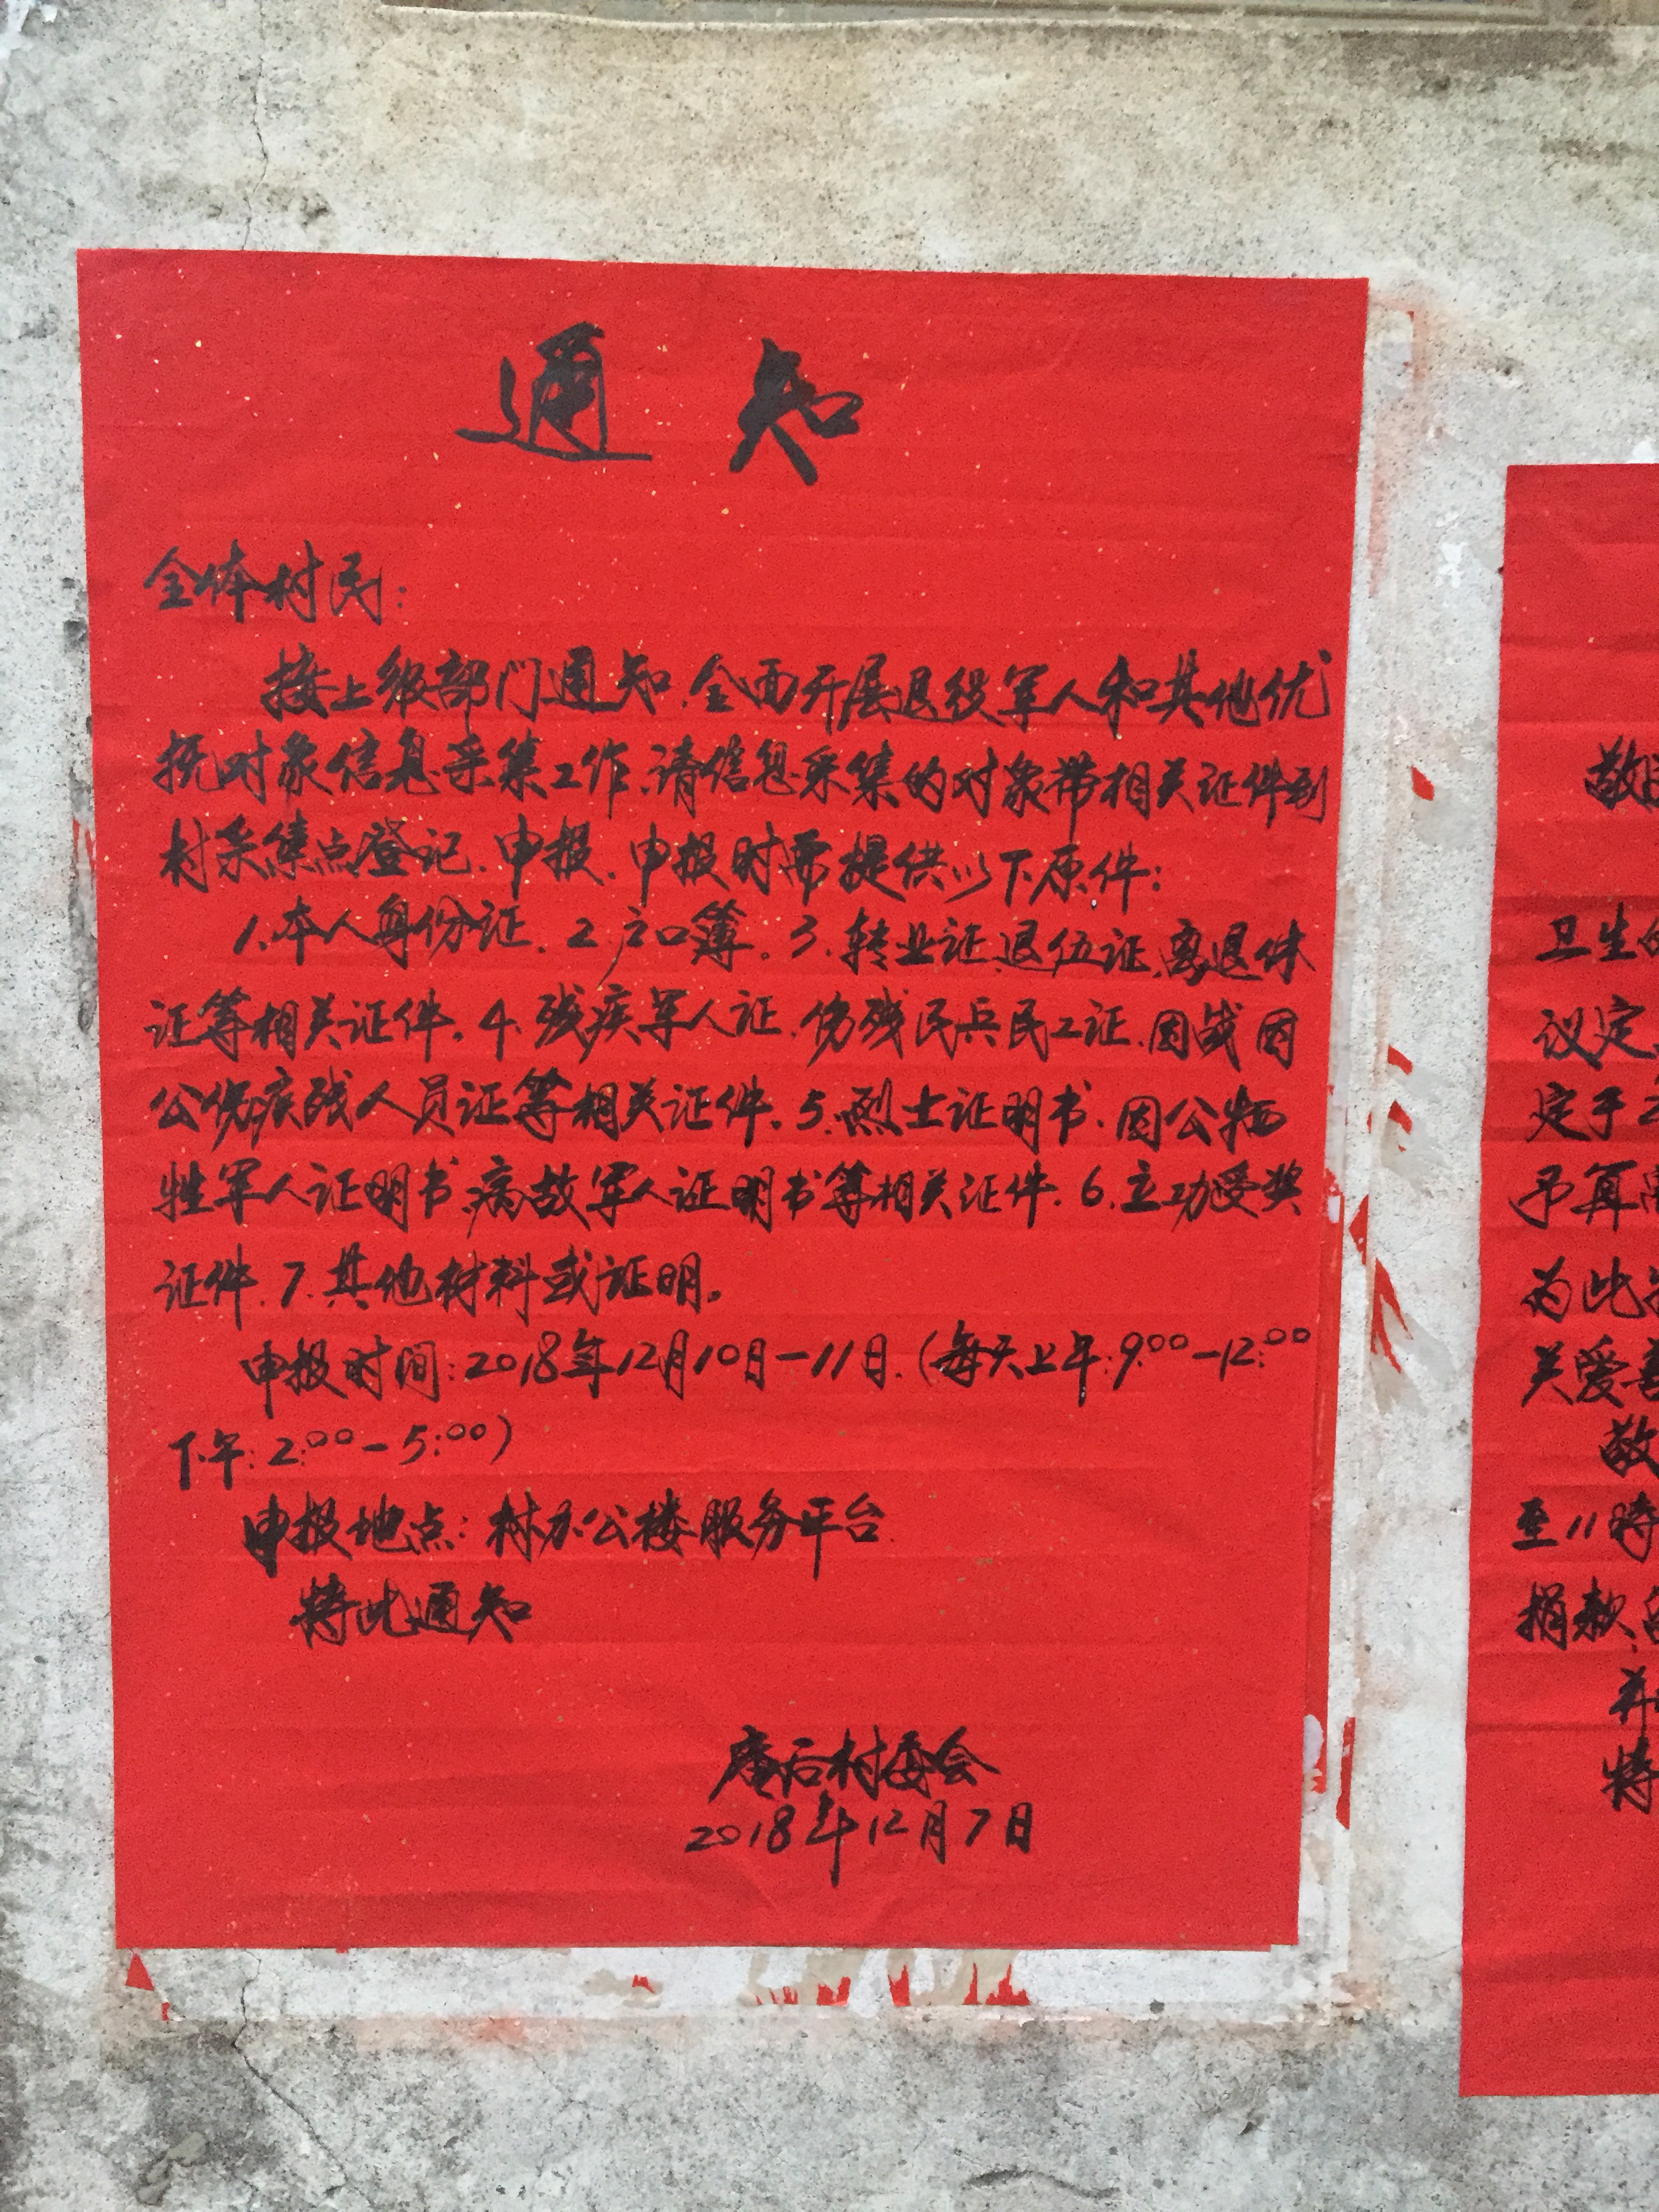 通知
全体村民：
接上级部门通知.全面开展退役军人和其他优
抚对象信息采集工作.请信息采集的对象带相关证件到
村采集点登记.申报.申报时需提供以下原件：
1.本人身份证.2.户口簿.3.转业证.退伍证.离退休
证等相关证件.4.残疾军人证.伤残民兵民工证.因战因
公伤残人员证等相关证件.5.烈士证明书.因公牺
牲军人证明书.病故军人证明书等相关证件.6.立功受奖
证件.7.其他材料或证明。
申报时间：2018年12月10日-11日.(每天上午:9:00-12:00
下午:2:00-5:00)
申报地点：村办公楼服务平台.
特此通知
庵后村委会
2018年12月7日
敬
卫生
议定
定于2
予
为此
关爱
敬
至11时
捐款
并
特